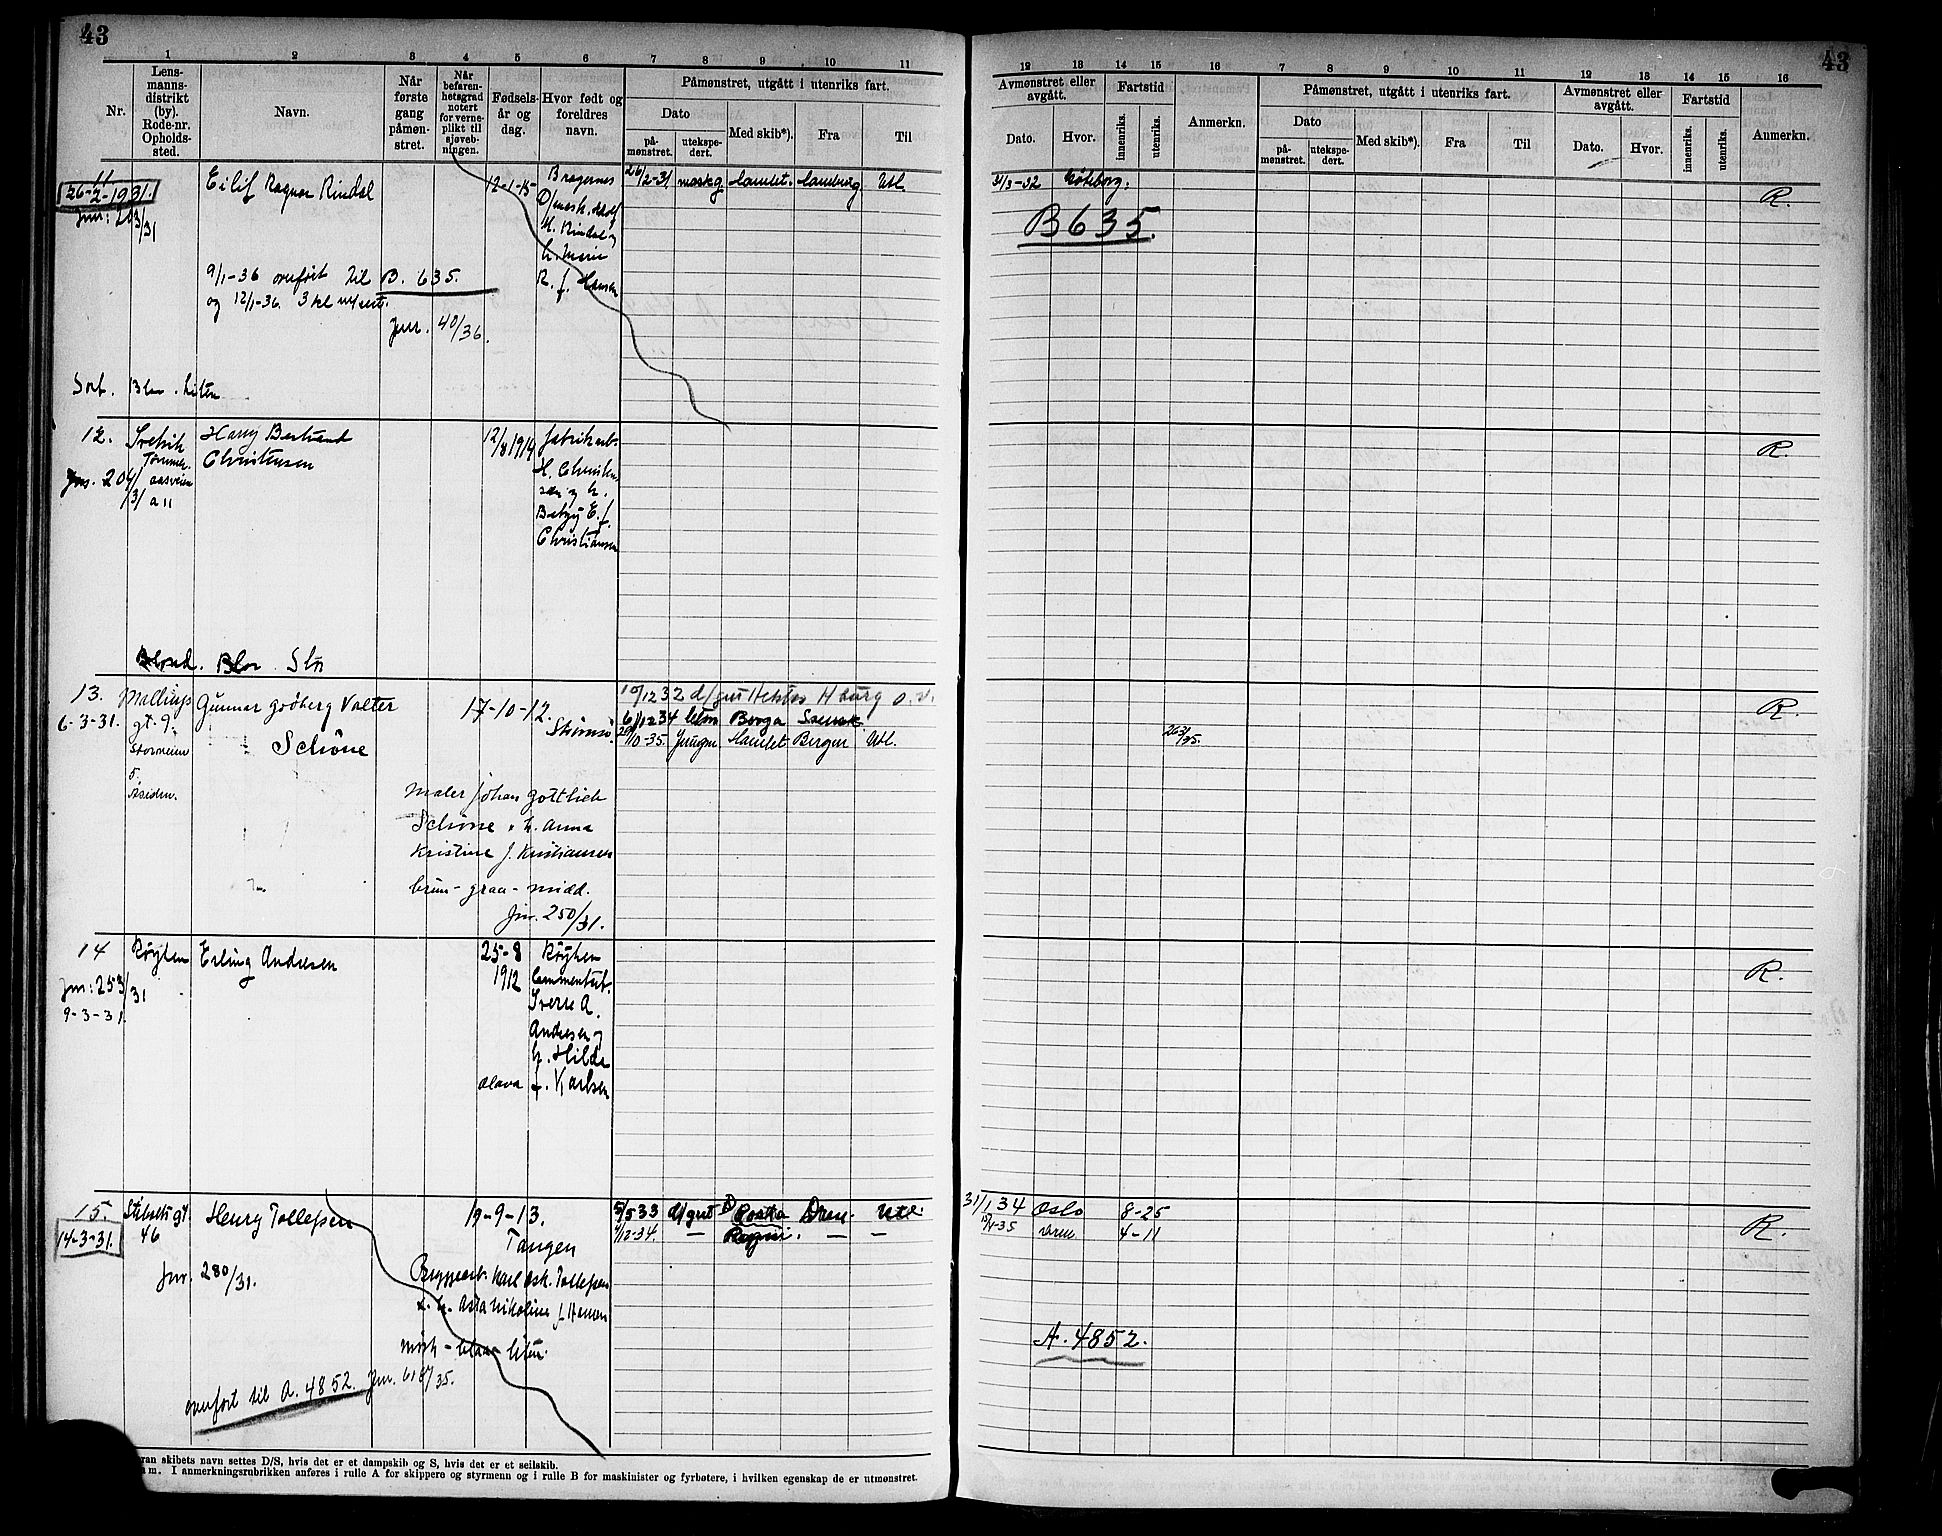 43
43
1 2 3 4 5 6 7 8 9 10 11
12 13 14 15 16 7 8 9 10 11 12 13 14 15 16
Nr.
Lens-
manns-
distrikt
(by).
Rode-nr.
Opholds-
sted.
Navn.
Når
første
gang
påmøn-
stret.
Når
befaren-
hetsgrad
notert
for verne-
plikt til
sjøveb-
ningen.
Fødsels-
år og
dag.
Hvor født og
foreldres
navn.
Påmønstret, utgått i utenriks fart.
Dato
på-
mønstret.
utekspe-
dert.
Med skib*).
Fra
Til
Avmønstret eller
avgått.
Dato.
Hvor.
Fartstid
innenriks.
utenriks.
Anmerkn.
Påmønstret, utgått i utenriks fart.
Dato
på-
mønstret.
utekspe-
dert.
Med skib*).
Fra
Til
Avmønstret eller
avgått.
Dato.
Hvor.
Fartstid
innenriks.
utenriks.
Anmerkn.
11
26-2-1931.
Jnr: 203/31
Eilif Ragnar Rindal
12-1-15
Bragernes
H. Rindal og
h. Marie
R. f. Hansen
26/2-31 maskg Hamlet. Hamburg Utl
31/3-32 Gøteborg.
B635.
R.
9/1-36 overført til B. 635.
og 12/1-36. 3 kl
Jnr. 40/36.
Sort. Blaa. Liten
12.
Jnr. 204/31
a 11
Harry Bertrand
Christensen
12/8 1914
Fabrikarb.
H. Christen-
sen og h.
Betzy E. f.
Christiansen
R.
Blond. Blaa. Stor
13.
6-3-31.
gt. 9.
Storveien
5
Åsiden.
Gunnar Godberg Valter
Schöne
17-10-12.
Strømsø.
10/12 32 d/gut Hektor Hburg o.v.
6/12 34 letm Borga Svensk
29/10-35. Jungm Hamlet Bergen Utl.
263/35.
R.
Maler Johan Gottlieb
Schöne . h. Anna
Kristine f. Kristiansen
brun - graa - midd.
Jnr. 250/31.
14
Jnr: 253/31
9-3-31.
Røyken
Erling Andresen
25-8
1912
Røyken
Cementarb.
Sverre A.
Andresen og
h. Hilda
Olava f. Karlsen
R.
15.
14-3-31.
Stibolts gt
46
Jnr. 280/31.
Henry Tollefsen
19-9-13.
Tangen
5/5 33 d/gut D Poska Dram. Utl.
4/12-34. — Ragni. — —
31/1 34 Oslo 8-25
drm. 4-11
R.
Bryggearb. Karl Osk. Tollefsen
o. h. Asta Nikoline f. Hansen
mørk - blaa - liten.
A. 4852.
overført til A. 4852. Jnr. 618/35.
ran skibets navn settes D/S, hvis det er et dampskib og S, hvis det er et seilskib.
m. I anmerkningsrubrikken anføres i rulle A for skippere og styrmenn og i rulle B for maskinister og fyrbøtere, i hvilken egenskap de er utmønstret.